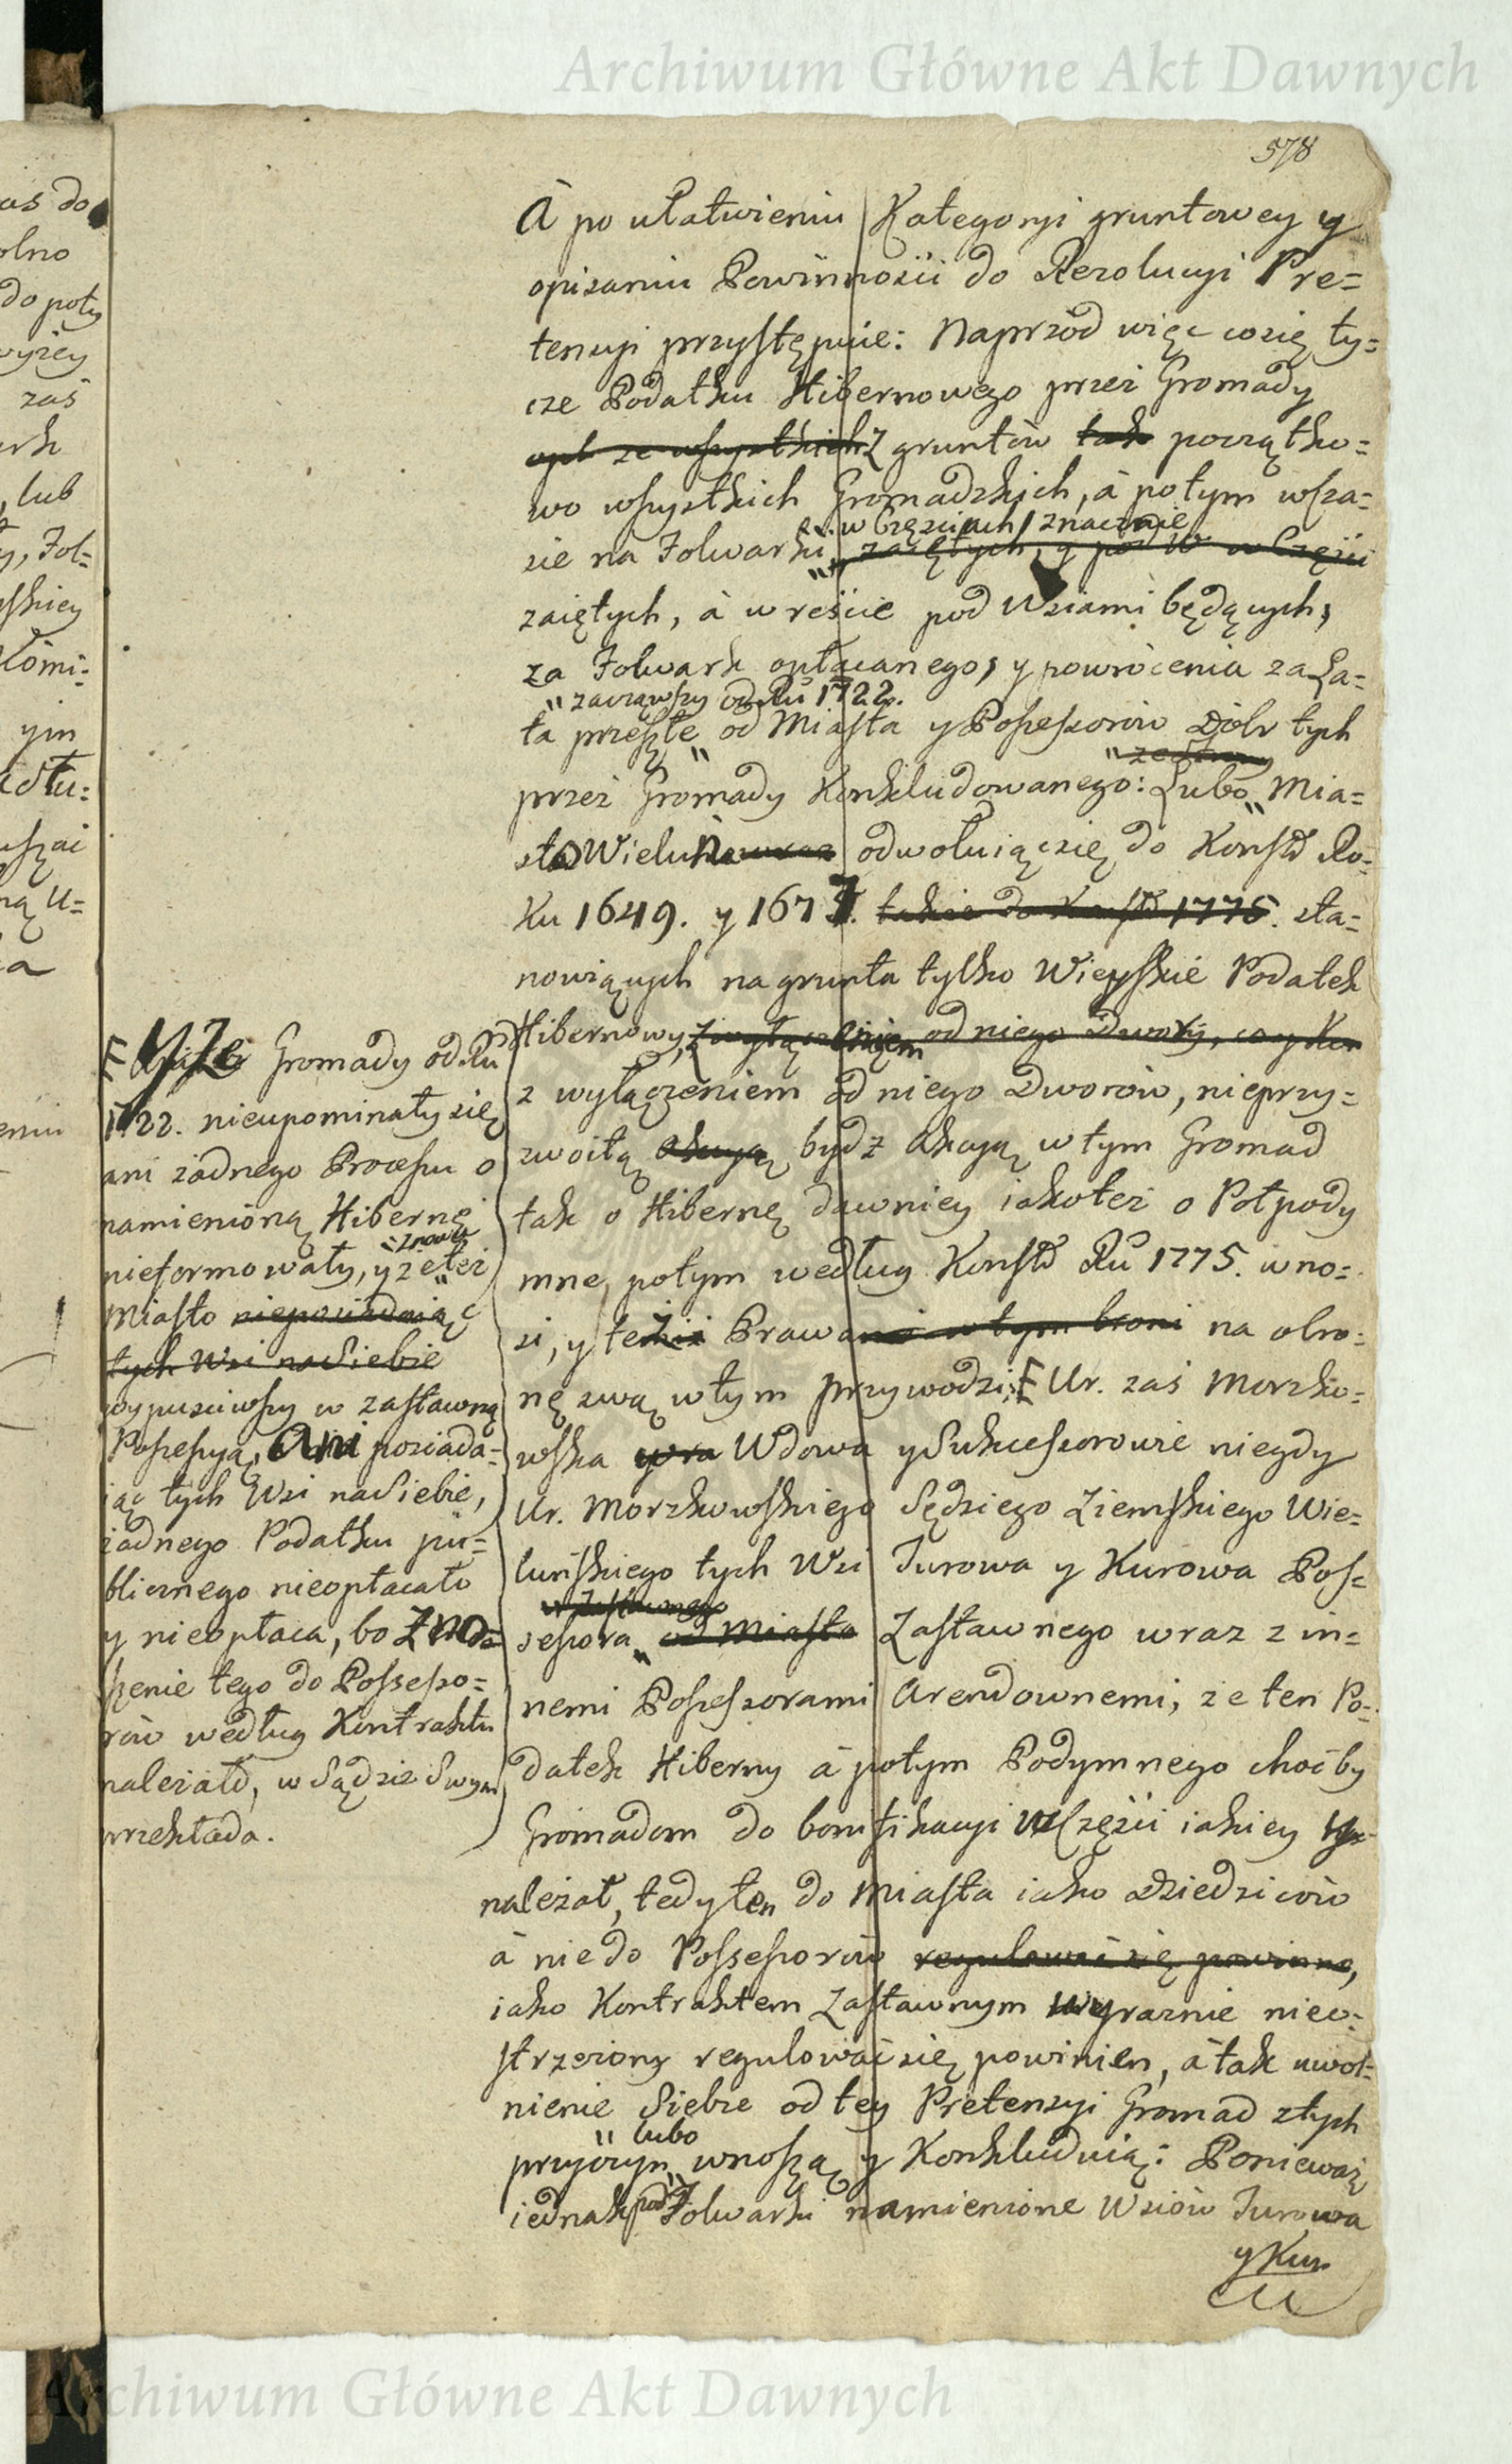 Archiwum Główne Akt Dawnych
578
A po ułatwieniu Kategoryi gruntowey y
opisaniu Powinności do Rezolucyi Pre=
tensyi przystępuie: Naprzód więc co się ty=
cze Podatku Hibernowego przez Gromady
opł ze wszystkich Z gruntów tak początko=
wo wszystkich Gromadzkich, á potym w cza=
sie na Folwarki
w Częściach znacznie
zaiętych, y pod W w Części
zaiętych, á w reście pod Wsiami będących,
za Folwark opłacanego, y powrócenia za La=
zacząwszy od Ru 1722.
ta przeszłe od Miasta y Possesorów Dóbr tych
przez Gromady Konkludowanego: Lubo Mia=
sto Wieluń odwołuiąc się do Konst Ro=
ku 1649. y 1677. także do Konst 1775. sta=
nowiących na grunta tylko Wieyskie Podatek
Hibernowy, z wyłączeniem od niego Dwory, co y Kur
z wyłączeniem od niego Dworów, nieprzy=
zwoitą akcyą bydz Akcyą w tym Gromad
tak o Hibernę dawniey iakoteż o Połpody
mne, potym według Konst Ru 1775. wno=
si, y też Prawa w tym broni na obro=
nę swą w tym przywodzi; Ur. zaś Morzko=
wska Wdowa y Sukcesorowie niegdy
Ur. Morzkowskiego Sędziego Ziemskiego Wie=
luńskiego tych Wsi Turowa y Kurowa Pos=
w Zastawnego
sesora od Miasta Zastawnego wraz z in=
nemi Possesorami Arendownemi, że ten Po=
datek Hiberny á potym Podymnego choćby
Gromadom do bonifikacyi w Części iakiey
należał, tedy ten do Miasta iako Dziedziców
á nie do Possesorów regulować się powinno,
iako Kontraktem Zastawnym wyraznie nieo=
strzeżony regulować się powinien, á tak uwol=
nienie Siebie od tey Pretensyi Gromad z tych
lubo
przyczyn wnoszą y Konkluduią: Ponieważ
iednak pod Folwarki namienione Wsiów Turowa
y Kur
Yże Gromady od Ru
1722. nieupominały się
ani żadnego Procesu o
namienioną Hibernę
znowu
nieformowały, y że też
Miasto nieposiadaiąc
tych Wsi na Siebie
wypuściwszy w zastawną
Possesyą, Ani posiada=
iąc tych Wsi na Siebie,
żadnego Podatku pu=
blicznego nieopłacało
y nieopłaca, bo Zno=
szenie tego do Possesso=
rów według Kontraktu
należało, w Sądzie Swym
przekłada.
Archiwum Główne Akt Dawnych